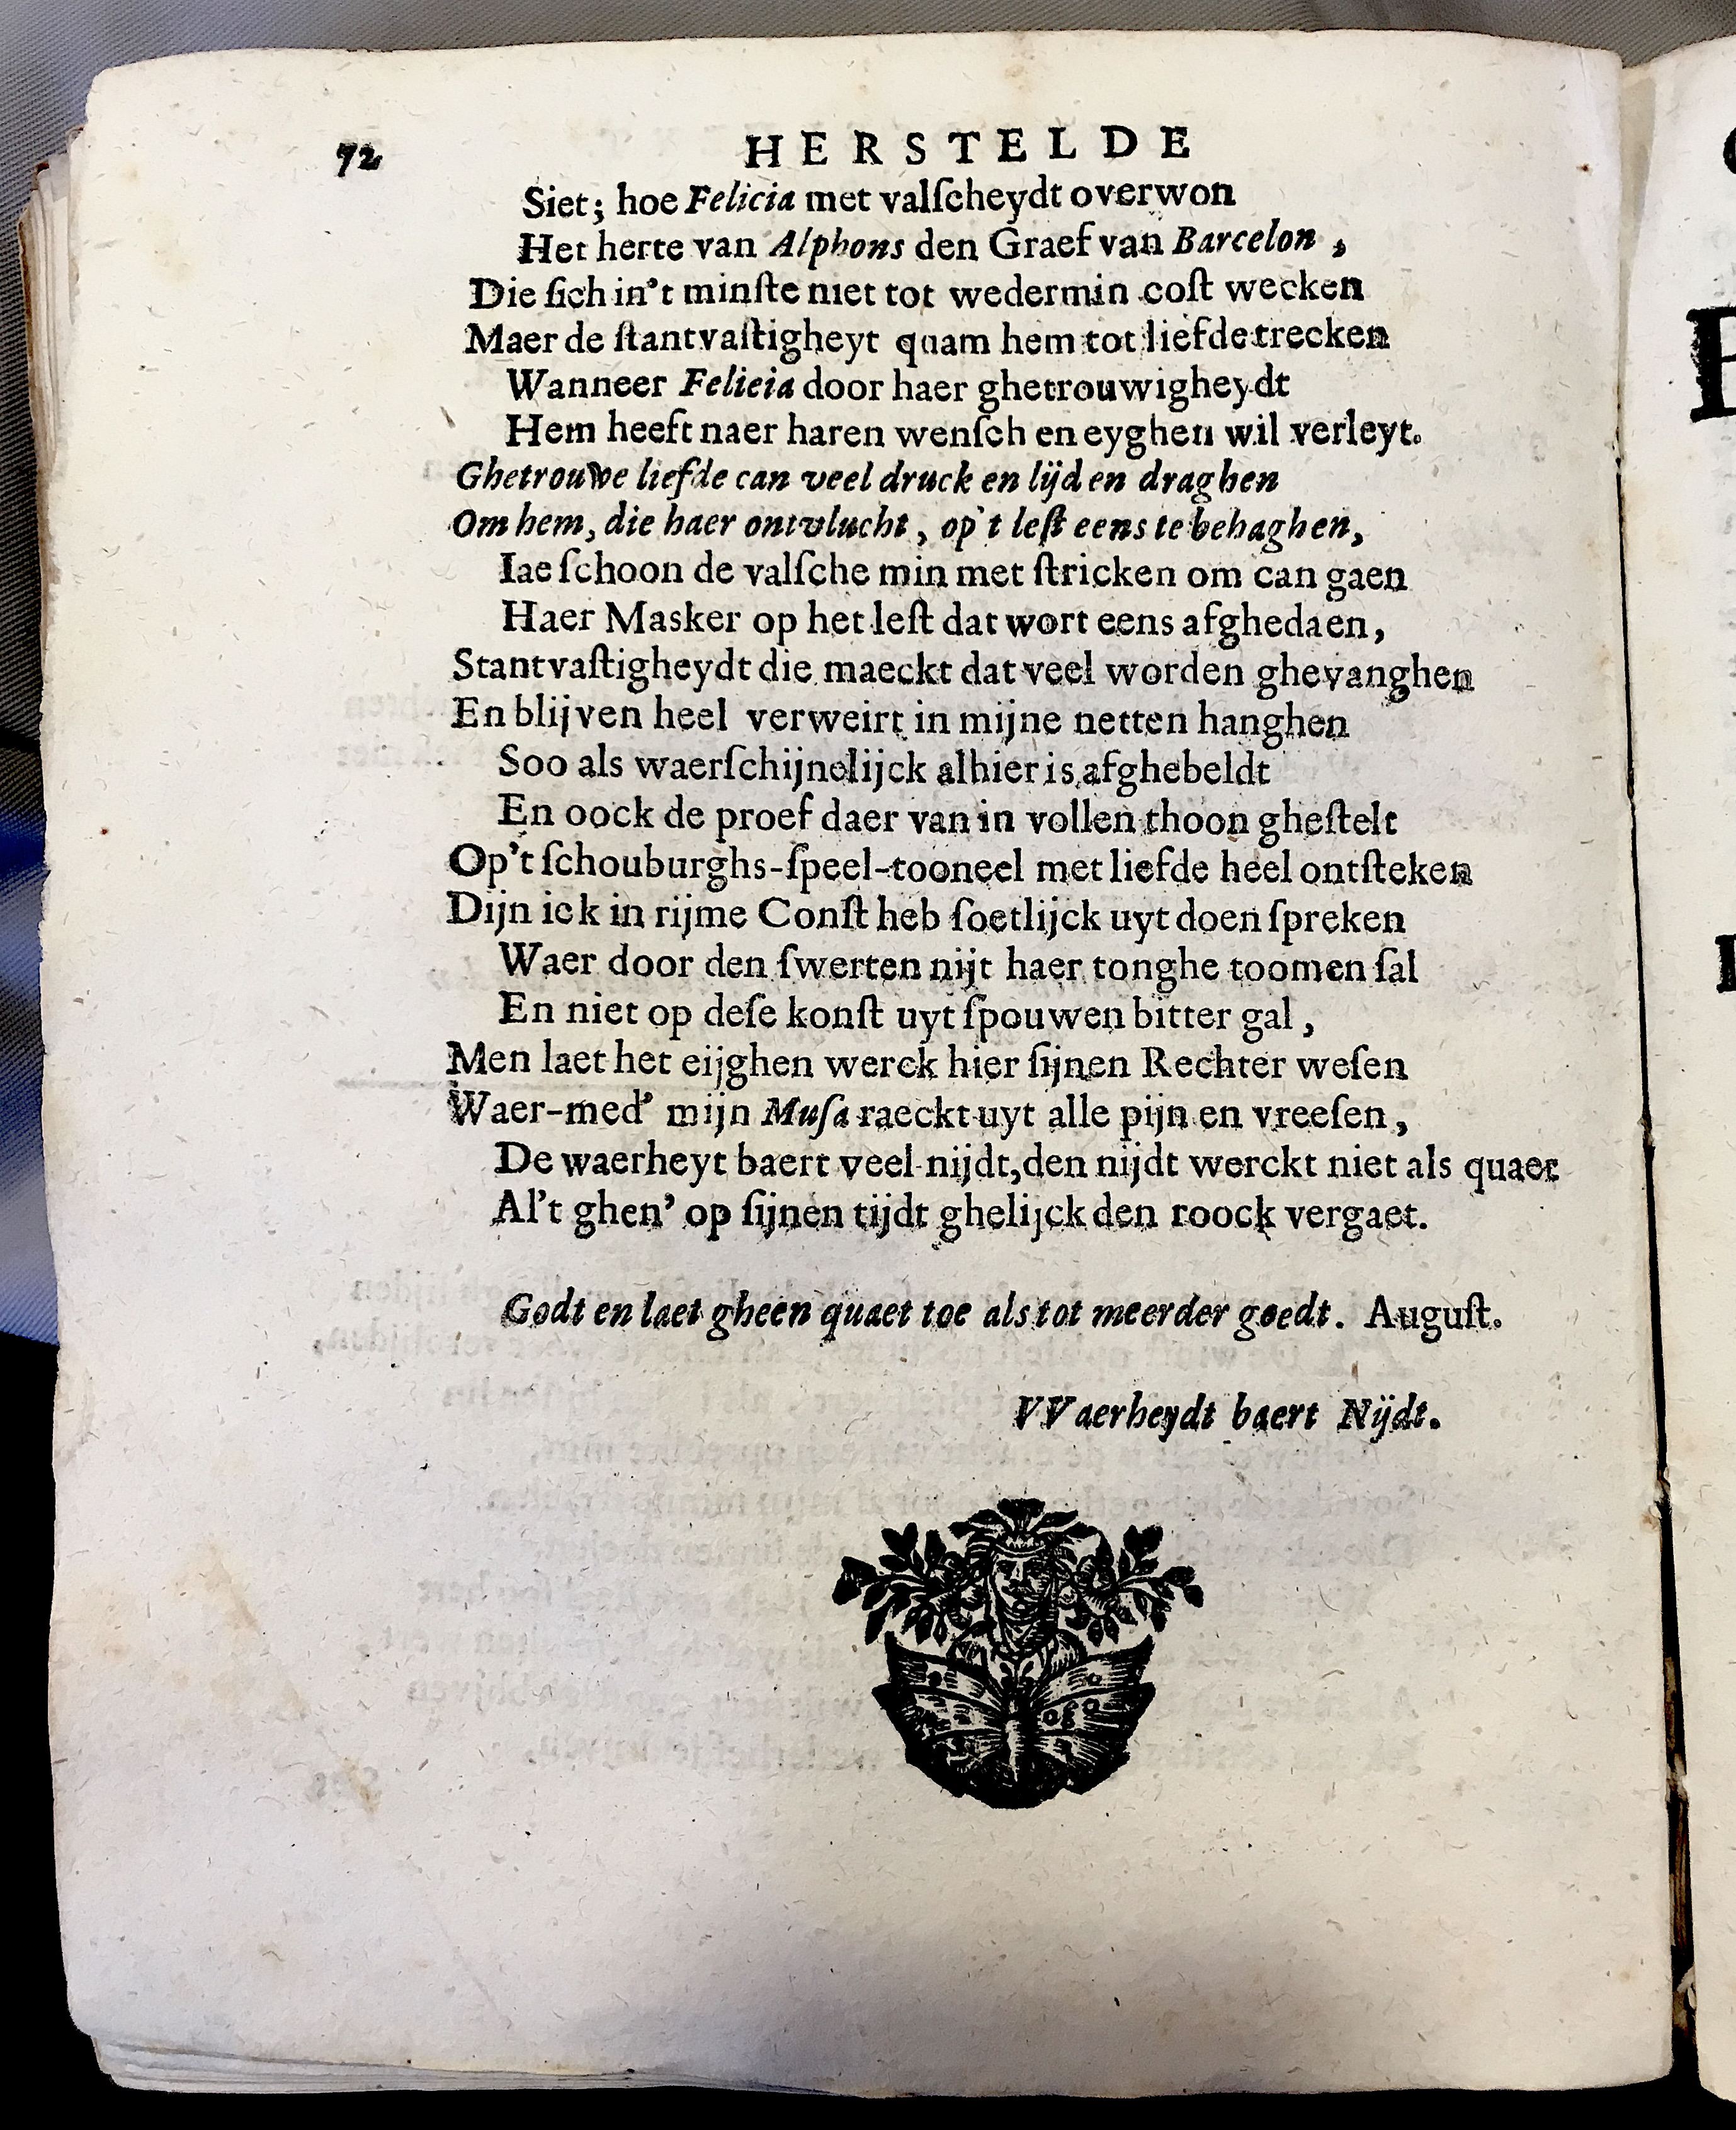 72 HERSTELDE
Siet; hoe Felicia met valſcheydt overwon
Het herte van Alphons den Graef van Barcelon,
Die ſich in't minſte niet tot wedermin coſt wecken
Maer de ſtantvaſtigheyt quam hem tot liefde trecken
Wanneer Felicia door haer ghetrouwigheydt
Hem heeft naer haren wenſch en eyghen wil verleyt.
Ghetrouwe liefde can veel druck en lijden draghen
Om hem, die haer ontvlucht, op't leſt eens te behaghen,
Iae ſchoon de valſche min met ſtricken om can gaen
Haer Masker op het leſt dat wort eens afghedaen,
Stantvaſtigheydt die maeckt dat veel worden ghevanghen
En blijven heel verweirt in mijne netten hanghen
Soo als waerſchijnelijck alhier is afghebeldt
En oock de proef daer van in vollen thoon gheſtelt
Op't ſchouburghs-ſpeel-tooneel met liefde heel ontſteken
Dijn ick in rijme Conſt heb ſoetlijck uyt doen ſpreken
Waer door den ſwerten nijt haer tonghe toomen ſal
En niet op deſe konſt uyt ſpouwen bitter gal,
Men laet het eijghen werck hier ſijnen Rechter weſen
Waer-med' mijn Muſa raeckt uyt alle pijn en vreeſen,
De waerheyt baert veel nijdt, den nijdt werckt niet als quaet
Al't ghen' op ſijnen tijdt ghelijck den roock vergaet.
Godt en laet gheen quaet toe als tot meerder goedt. Auguſt.
VVaerheydt baert Nijdt.